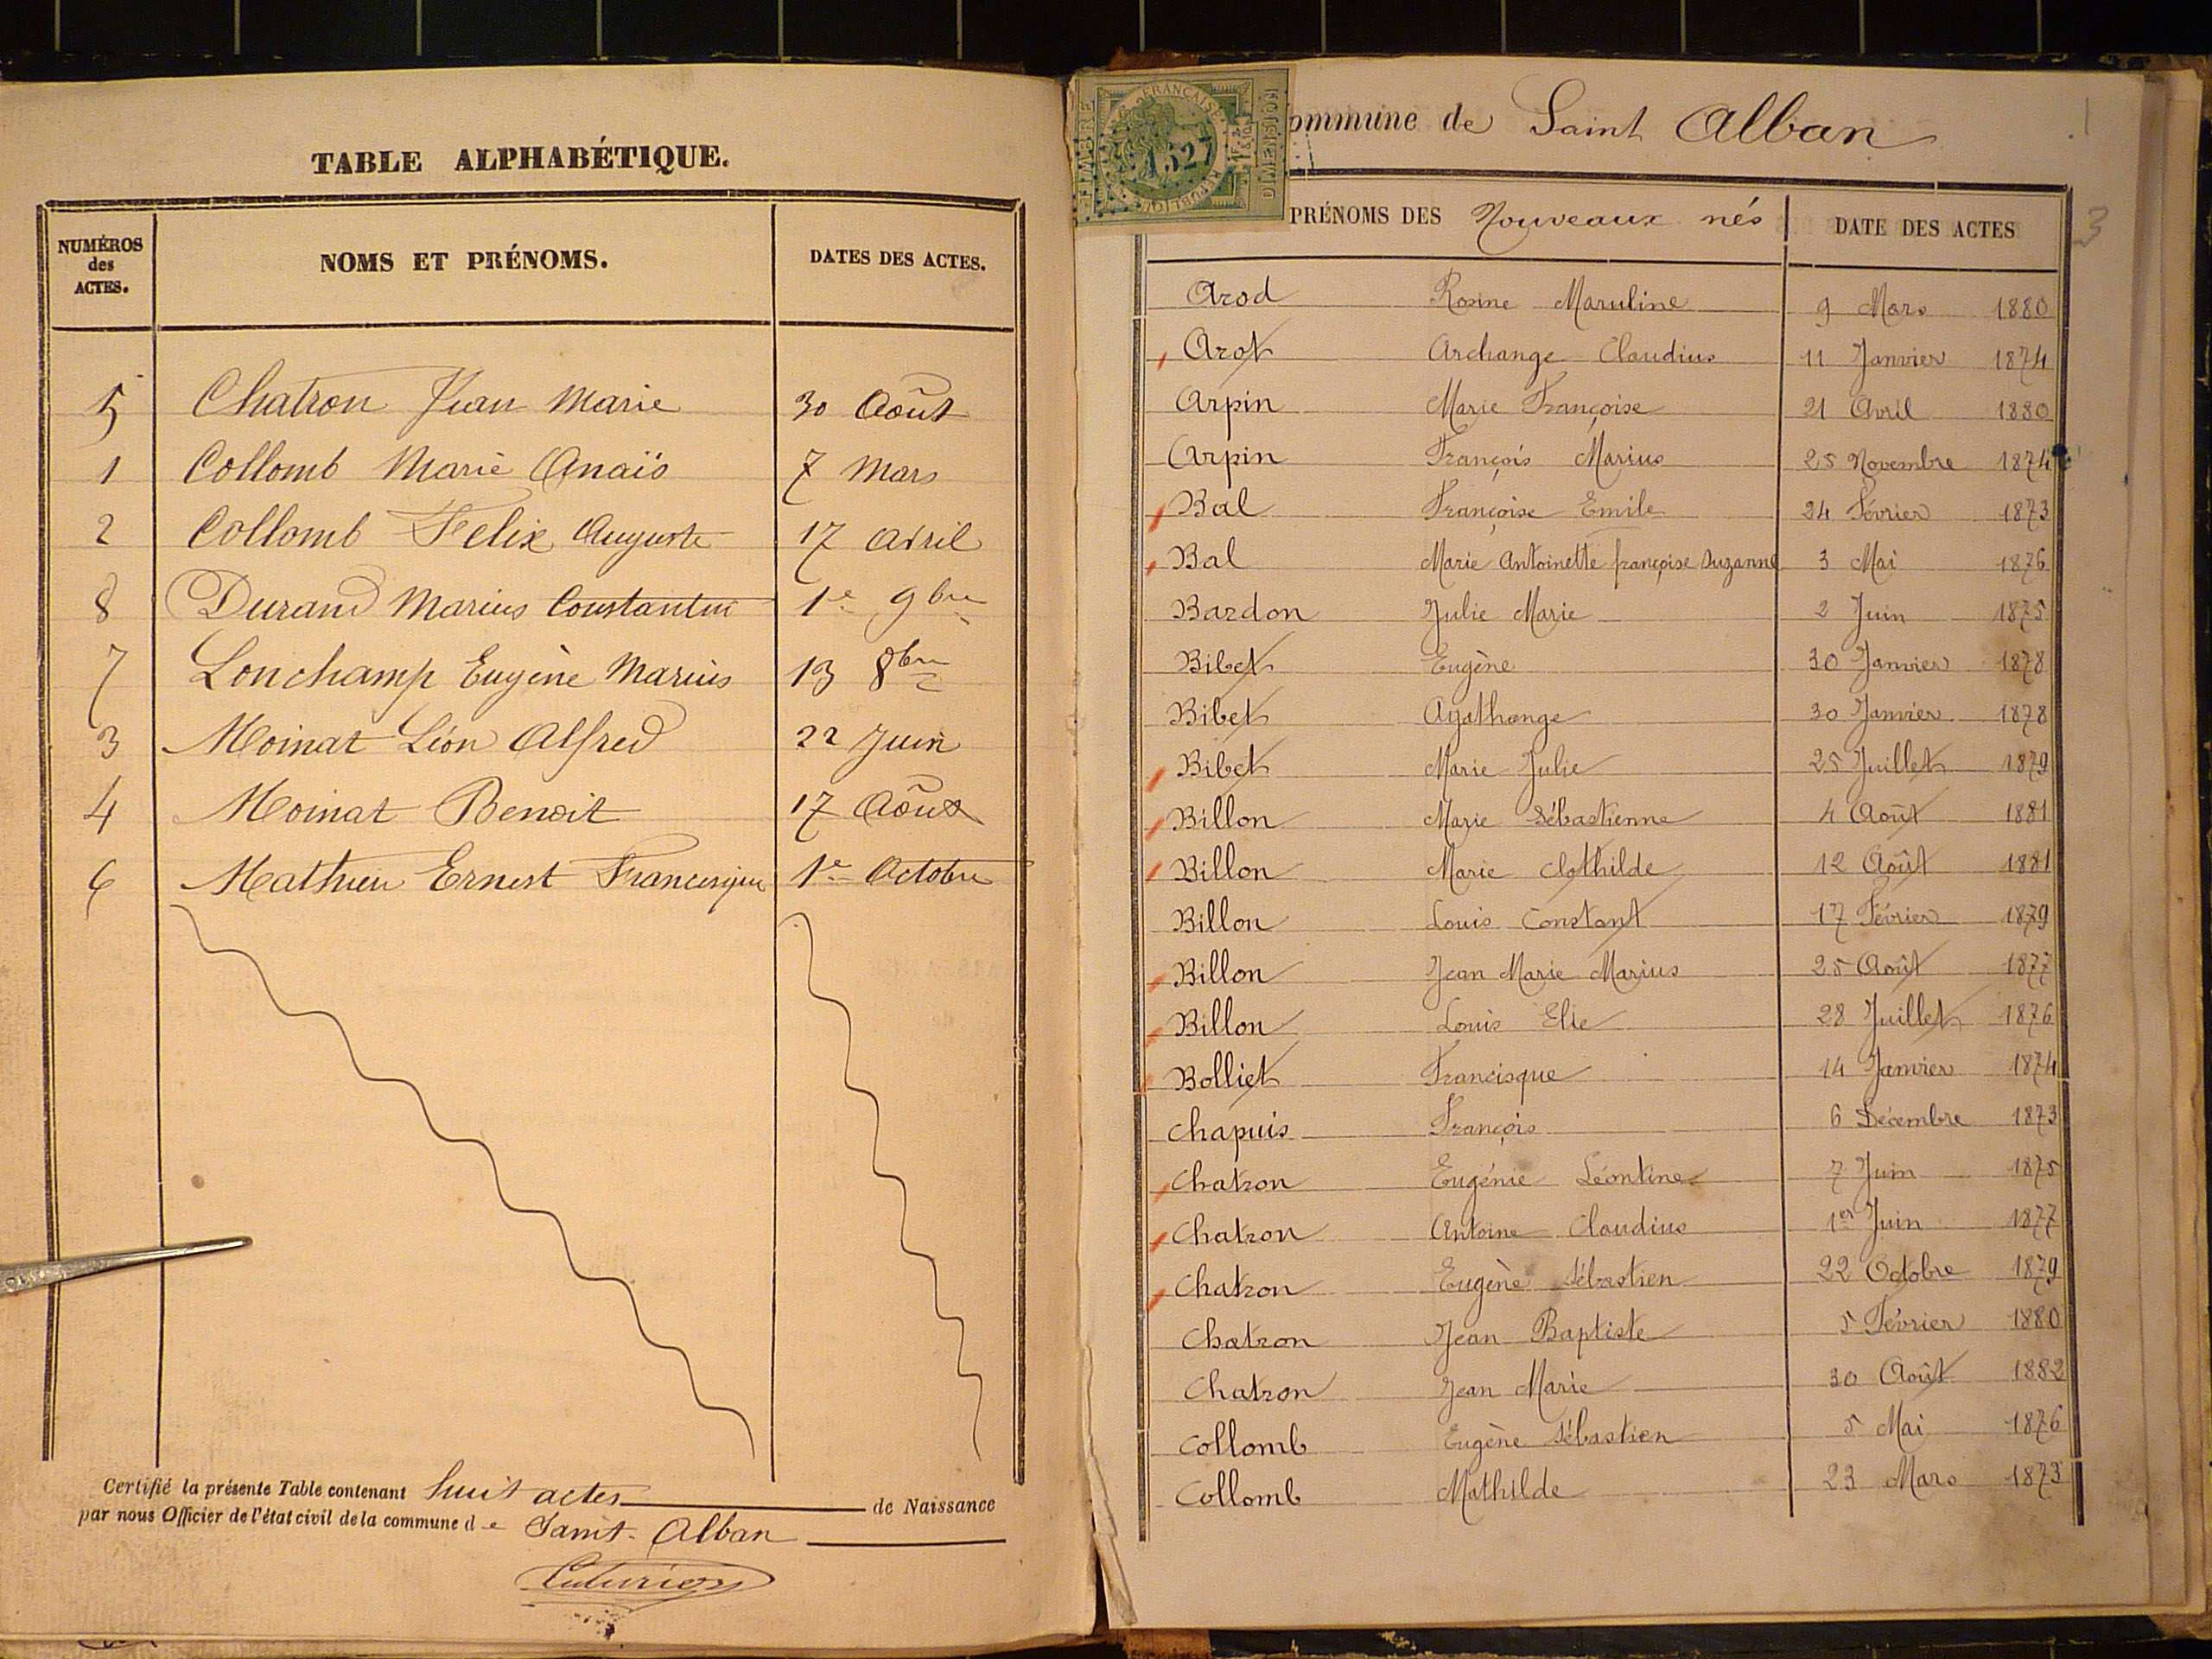 TABLE ALPHABÉTIQUE.
NUMÉROS des ACTES. NOMS ET PRÉNOMS. DATES DES ACTES.
5 Chatron Jean Marie 30 Août
1 Collomb Marie Anaïs 7 Mars
2 Collomb Felix Auguste 17 Avril
8 Durand Marius Constantin 1e 9bre
7 Lonchamp Eugène Marius 13 8bre
3 Moinat Léon Alfred 22 Juin
4 Moinat Benoit 17 Août
6 Mathieu Ernest Francisque 1e Octobre
Certifié la présente Table contenant huit actes de Naissance
par nous Officier de l'état civil de la commune de Saint-Alban
TIMBRE
DIMENSION
1527
ommune de Saint Alban
PRÉNOMS DES Nouveaux nés DATE DES ACTES
3
Arod Rosine Maruline 9 Mars 1880
Arot Archange Claudius 11 Janvier 1874
Arpin Marie Françoise 21 Avril 1880
Arpin François Marius 25 Novembre 1874
Bal Françoise Emile 24 Février 1873
Bal Marie Antoinette françoise Suzanne 3 Mai 1876
Bardon Julie Marie 2 Juin 1875
Bibet Eugène 30 Janvier 1878
Bibet Agathange 30 Janvier 1878
Bibet Marie Julie 25 Juillet 1879
Billon Marie Sébastienne 4 Août 1881
Billon Marie Clothilde 12 Août 1881
Billon Louis Constant 17 Février 1879
Billon Jean Marie Marius 25 Août 1877
Billon Louis Elie 28 Juillet 1876
Bolliet Francisque 14 Janvier 1874
Chapuis François 6 Décembre 1873
Chatron Eugénie Léontine 7 Juin 1875
Chatron Antoine Claudius 1er Juin 1877
Chatron Eugène Sébastien 22 Octobre 1879
Chatron Jean Baptiste 5 Février 1880
Chatron Jean Marie 30 Août 1882
Collomb Eugène Sébastien 5 Mai 1876
Collomb Mathilde 23 Mars 1873